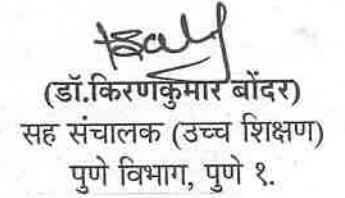 (डॉ.किरणकुमार बोंदर)
सह संचालक (उच्च शिक्षण)
पुणे विभाग, पुणे १.